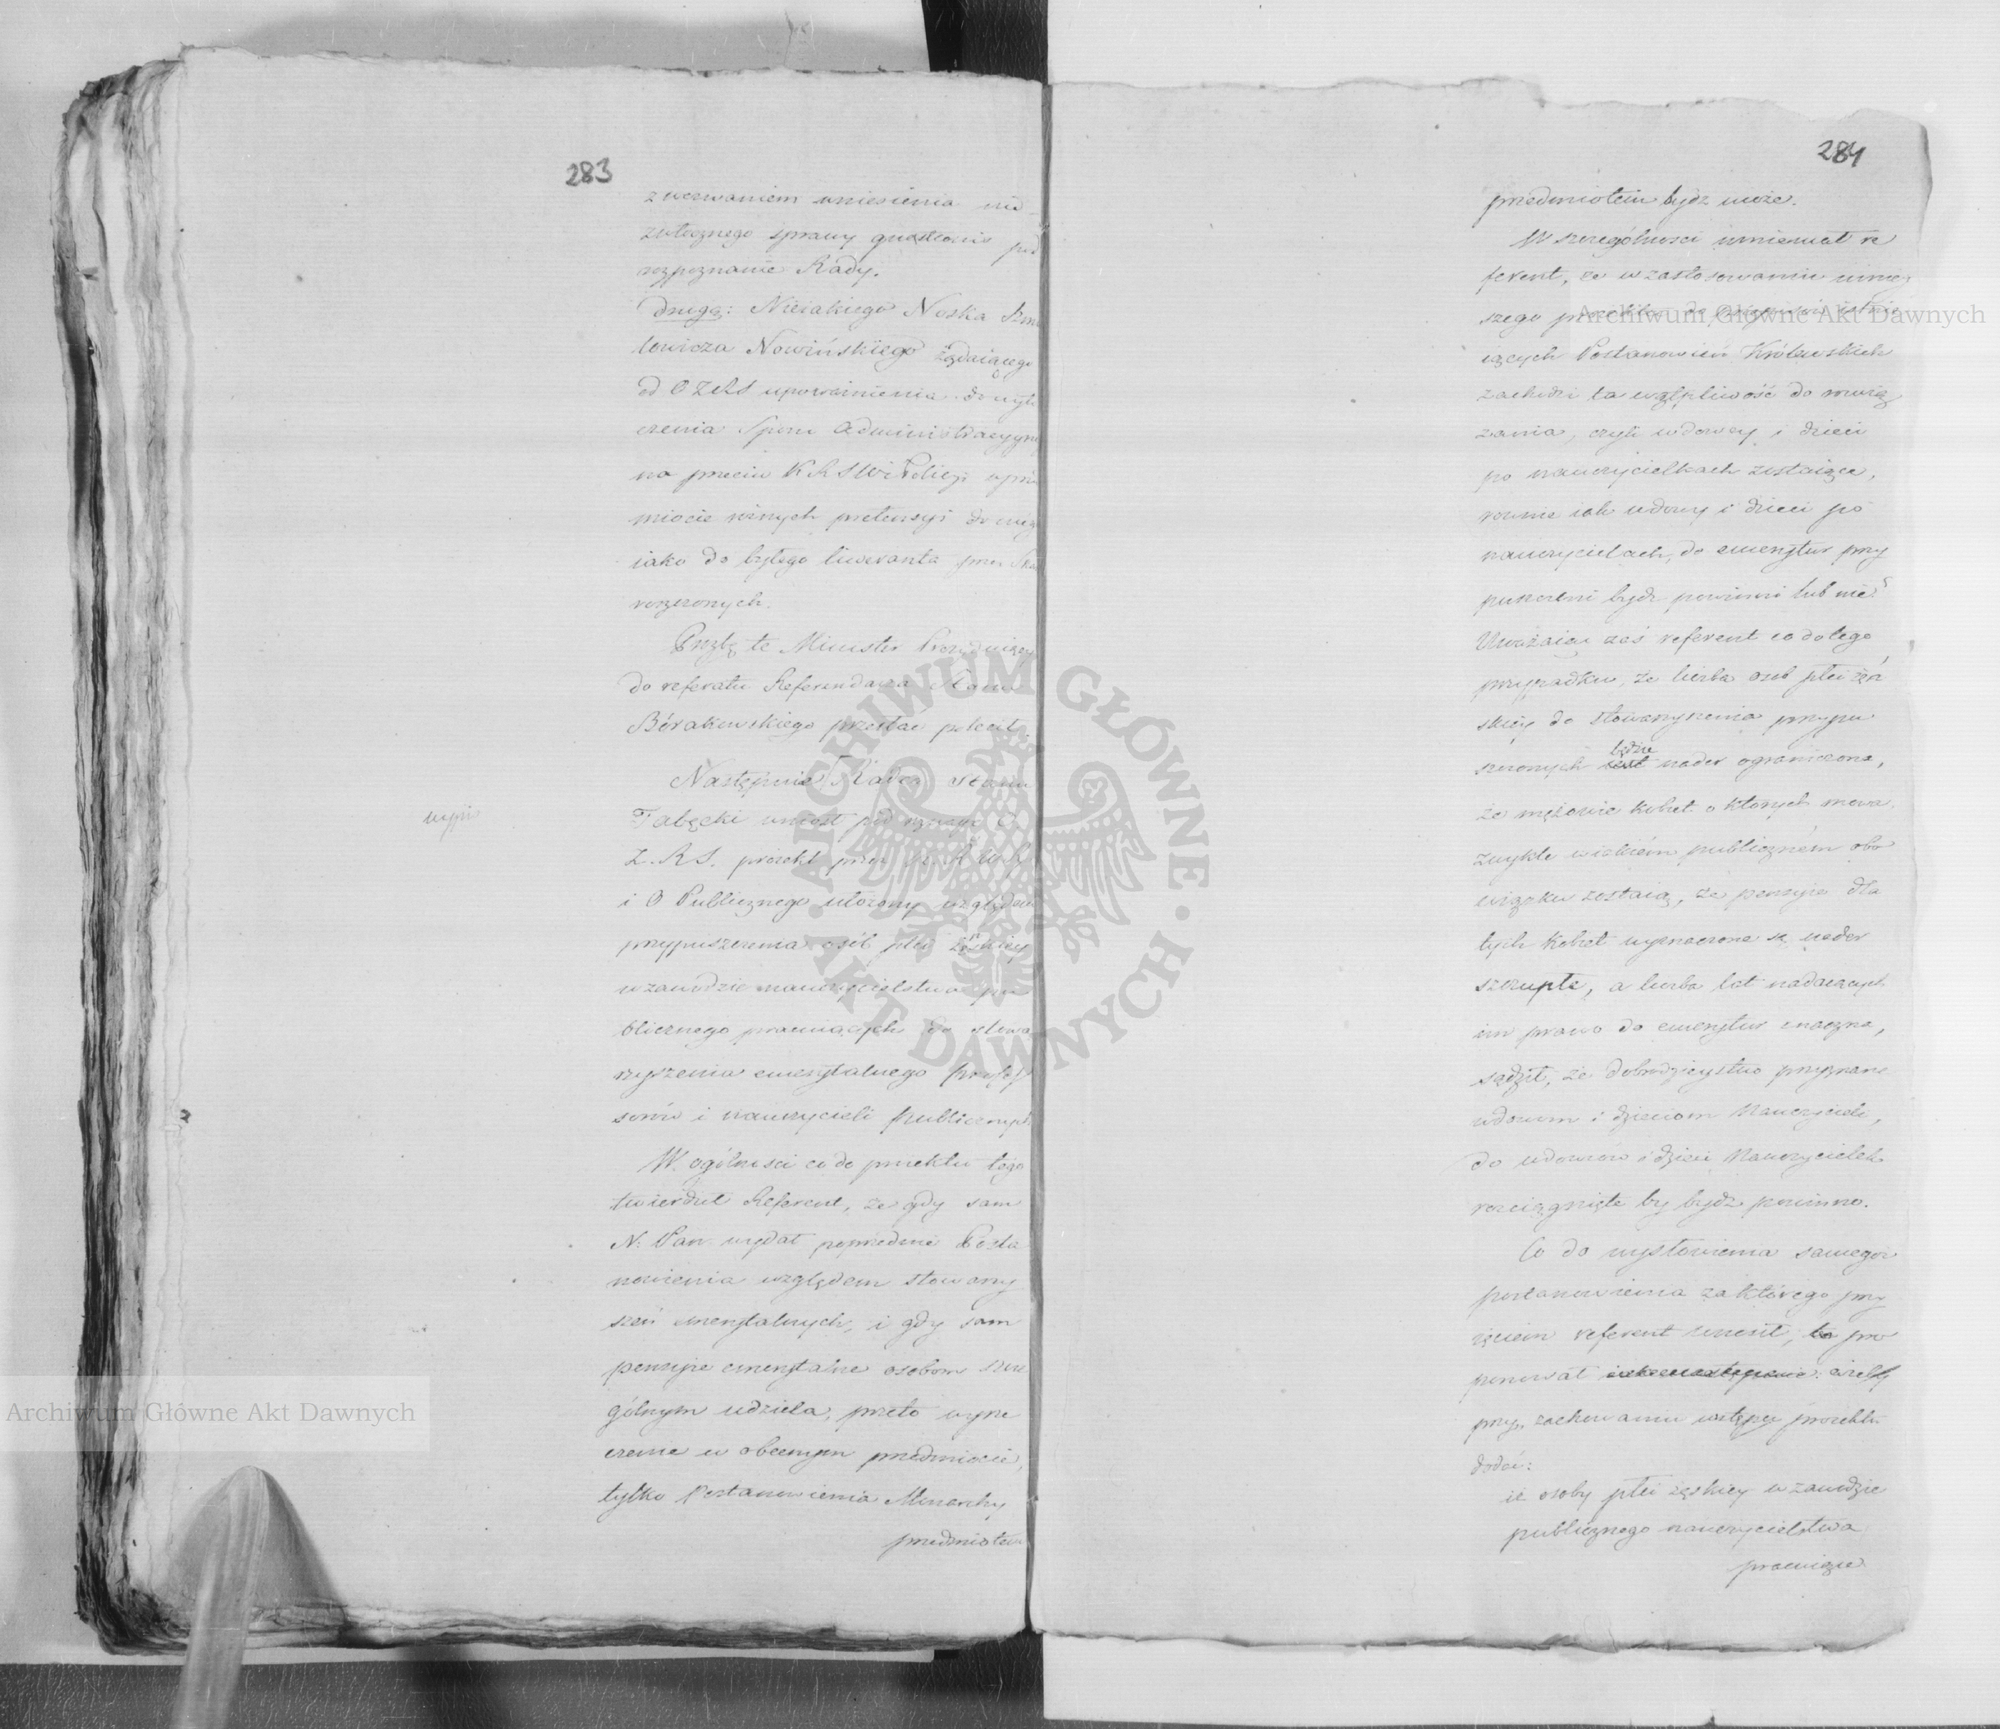 283
z wezwaniem wniesienia nie
zwłocznego sprawy questionis pod
rozpoznanie Rady.
drugą: Nieiakiego Noska Szmu
lowicza Nowińskiego żądaiącego
od OZRS upoważnienia do wyto
czenia Sporu Administracyyne
na przeciw KRSWi Policyi w prze
miocie różnych pretensyi do niego
iako do byłego liweranta przez Skar
roszczonych.
Prozbę te Minister Prezyduiący
do referatu Referendarza Stanu
Bórakowskiego przesłać polecił.
Następnie Radca Stanu
wypis
Tabęcki wniósł pod decyzyą O.
Z. R S. proiekt przez K. R W. R
i O Publicznego ułożony względem
przypuszczenia osób płci żeńskiey
w zawodzie nauczycielstwa pu
blicznego pracuiących do stowa
rzyszenia emerytalnego Profes
sorów i nauczycieli publicznych
W ogólności co do proiektu tego
twierdził Referent, że gdy sam
N: Pan wydał poprzednie Posta
nowienia względem stowarzy
szeń emerytalnych, i gdy sam
pensyie emerytalne osobom szcze
gólnym udziela, przeto wyrze
czenie w obecnym przedmiocie,
tylko Postanowienia Monarchy
przedmiotem
284
przedmiotem bydz może.
W szczególności mniemał re
ferent, że w zastosowaniu niniey
szego proiektu do przepisów istnie
iących Postanowień Królewskich
zachodzi ta wątpliwość do rozwią
zania, czyli wdowcy i dzieci
po nauczycielkach zostaiące,
równie iak wdowy i dzieci po
nauczycielach, do emerytur przy
puszczeni bydz powinni lub nie?
Uważaiąc zaś referent co do tego
przypadku, że liczba osób płci żeń
skiey do stowarzyszenia przypu
będzie
szczonych iest nader ograniczona,
że mężowie kobiet o których mowa
zwykle w iakiém publiczném obo
wiązku zostaią, że pensyie dla
tych kobiet wyznaczone są nader
szczupłe, a liczba lat nadaiących
im prawo do emerytur znaczna,
sądził, że dobrodzieystwo przyznane
wdowom i dzieciom Nauczycieli,
do wdowców i dzieci Nauczycielek
rozciągnięte by bydz powinno.
Co do wysłowienia samego
postanowienia za którego przy
ięciem referent wnosił, to pro
ponował iako następnie: ażeby
przy zachowaniu wstępu proiektu
dodać:
iż osoby płci żęskiey w zawodzie
publicznego nauczycielstwa
pracuiące
Archiwum Główne Akt Dawnych
Archiwum Główne Akt Dawnych
· ARCHIWUM GŁÓWNE · AKT DAWNYCH